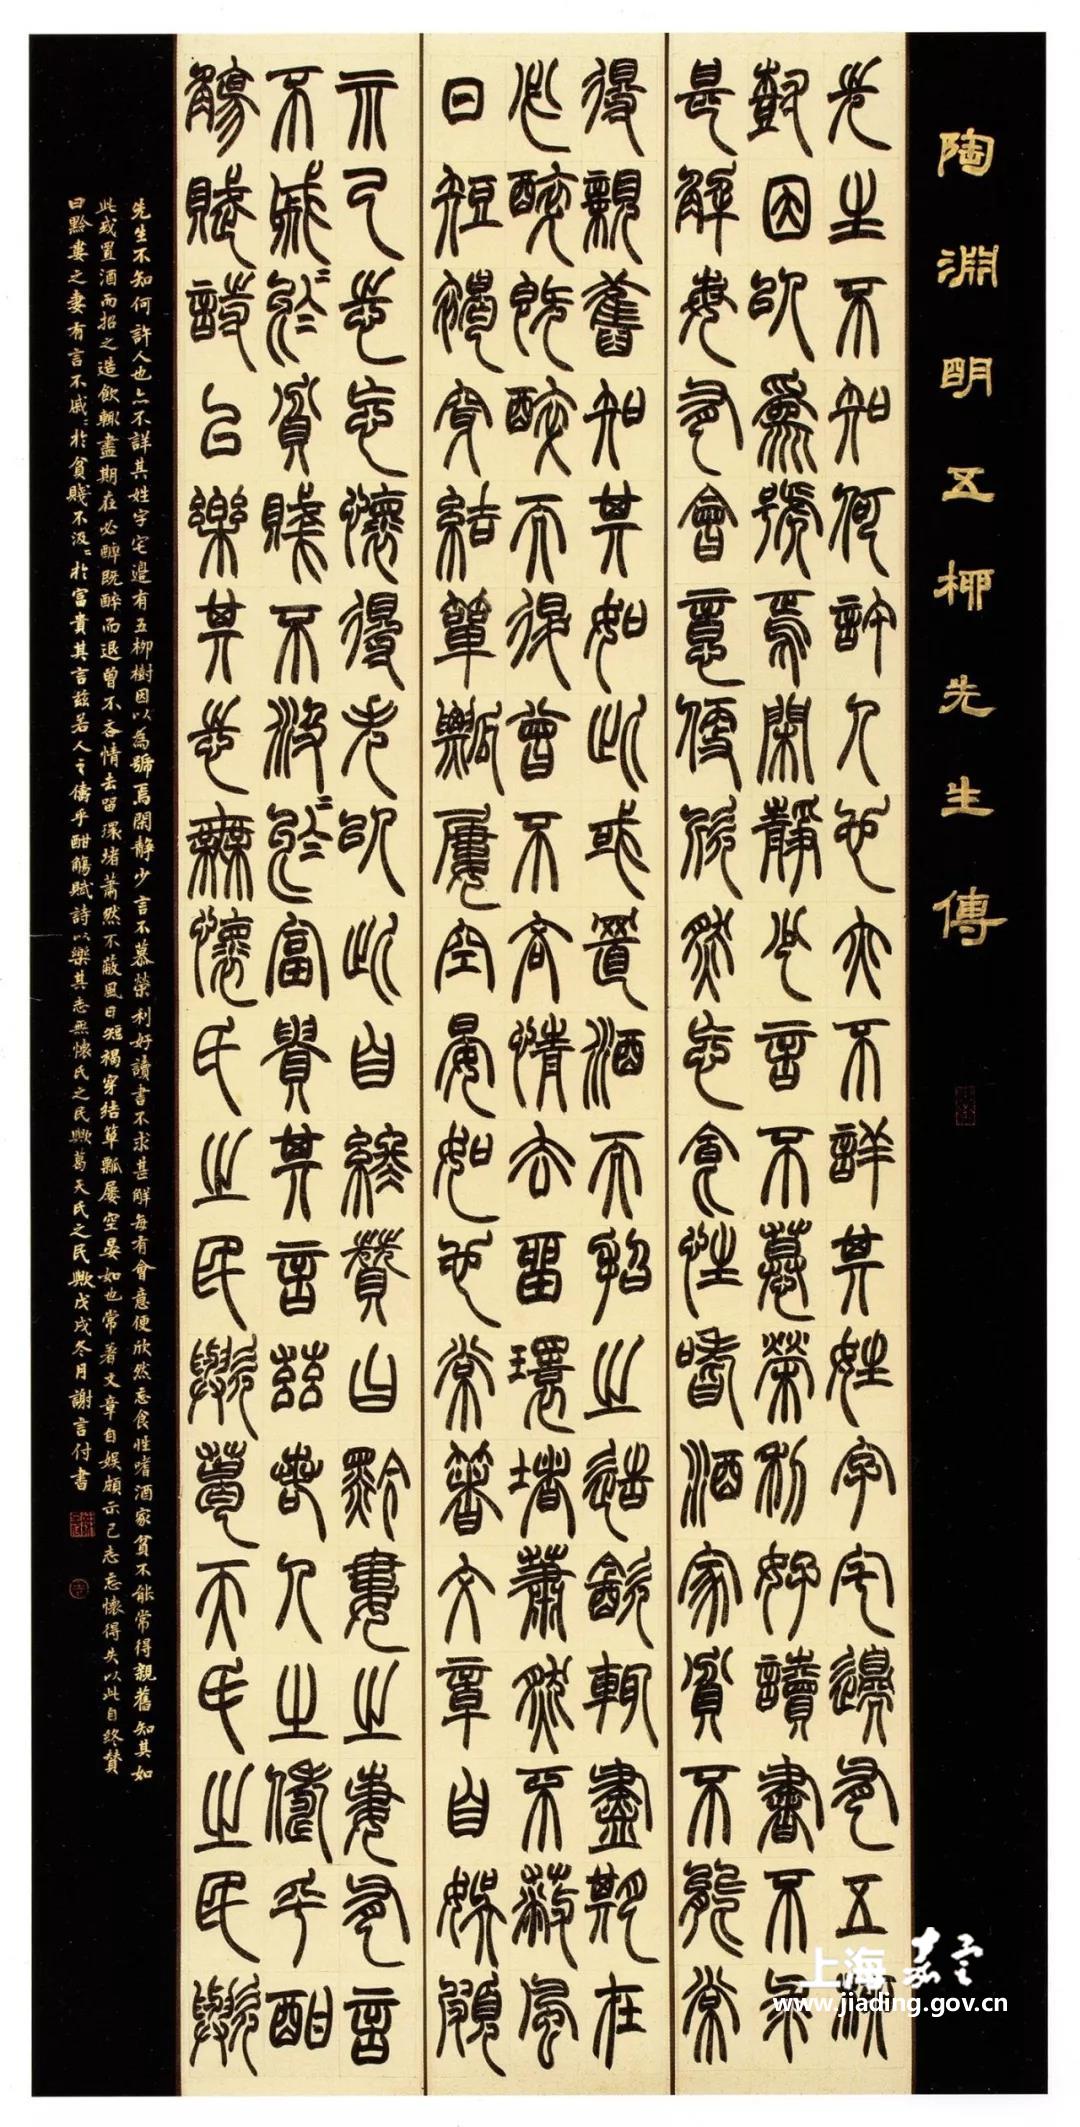 陶淵明五柳先生傳
先生不知何許人也亦不詳其姓字宅邊有五柳
樹因以為號焉閑靜少言不慕榮利好讀書不求
甚解每有會意便欣然忘食性嗜酒家貧不能常
得親舊知其如此或置酒而招之造飲輒盡期在
必醉既醉而退曾不吝情去留環堵蕭然不蔽風
日短褐穿結簞瓢屢空晏如也常著文章自娛頗
示己志忘懷得失以此自終贊曰黔婁之妻有言
不戚〻於貧賤不汲〻於富貴其言茲若人之儔乎酣
觴賦詩以樂其志無懷氏之民歟葛天氏之民歟
先生不知何許人也亦不詳其姓字宅邊有五柳樹因以為號焉閑靜少言不慕榮利好讀書不求甚解每有會意便欣然忘食性嗜酒家貧不能常得親舊知其如
此或置酒而招之造飲輒盡期在必醉既醉而退曾不吝情去留環堵蕭然不蔽風日短褐穿結簞瓢屢空晏如也常著文章自娛頗示己志忘懷得失以此自終贊
曰黔婁之妻有言不戚〻於貧賤不汲〻於富貴其言茲若人之儔乎酣觴賦詩以樂其志無懷氏之民歟葛天氏之民歟戊戌冬月謝言付書
上海嘉定
www.jiading.gov.cn